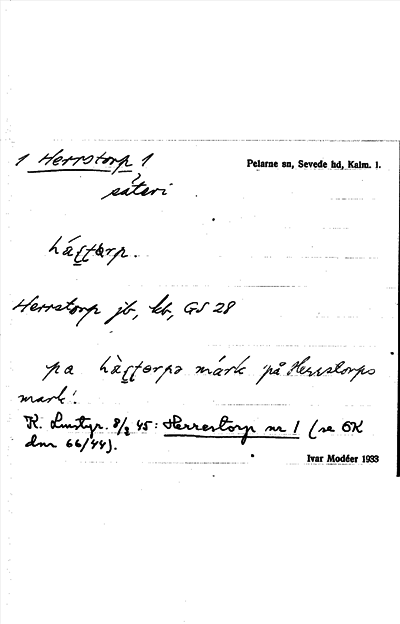 1 Herrstorp 1
Pelarne sn, Sevede hd, Kalm. l.
säteri
há̀ʂʈɑrp.
Herrstorp jb, kb, GS 28
pa hàʂʈɑrpə márk på Herrstorps
mark'.
K. Lmstyr. 8/2 45: Herrestorp nr 1 (se OK
dnr 66/44).
Ivar Modéer 1933